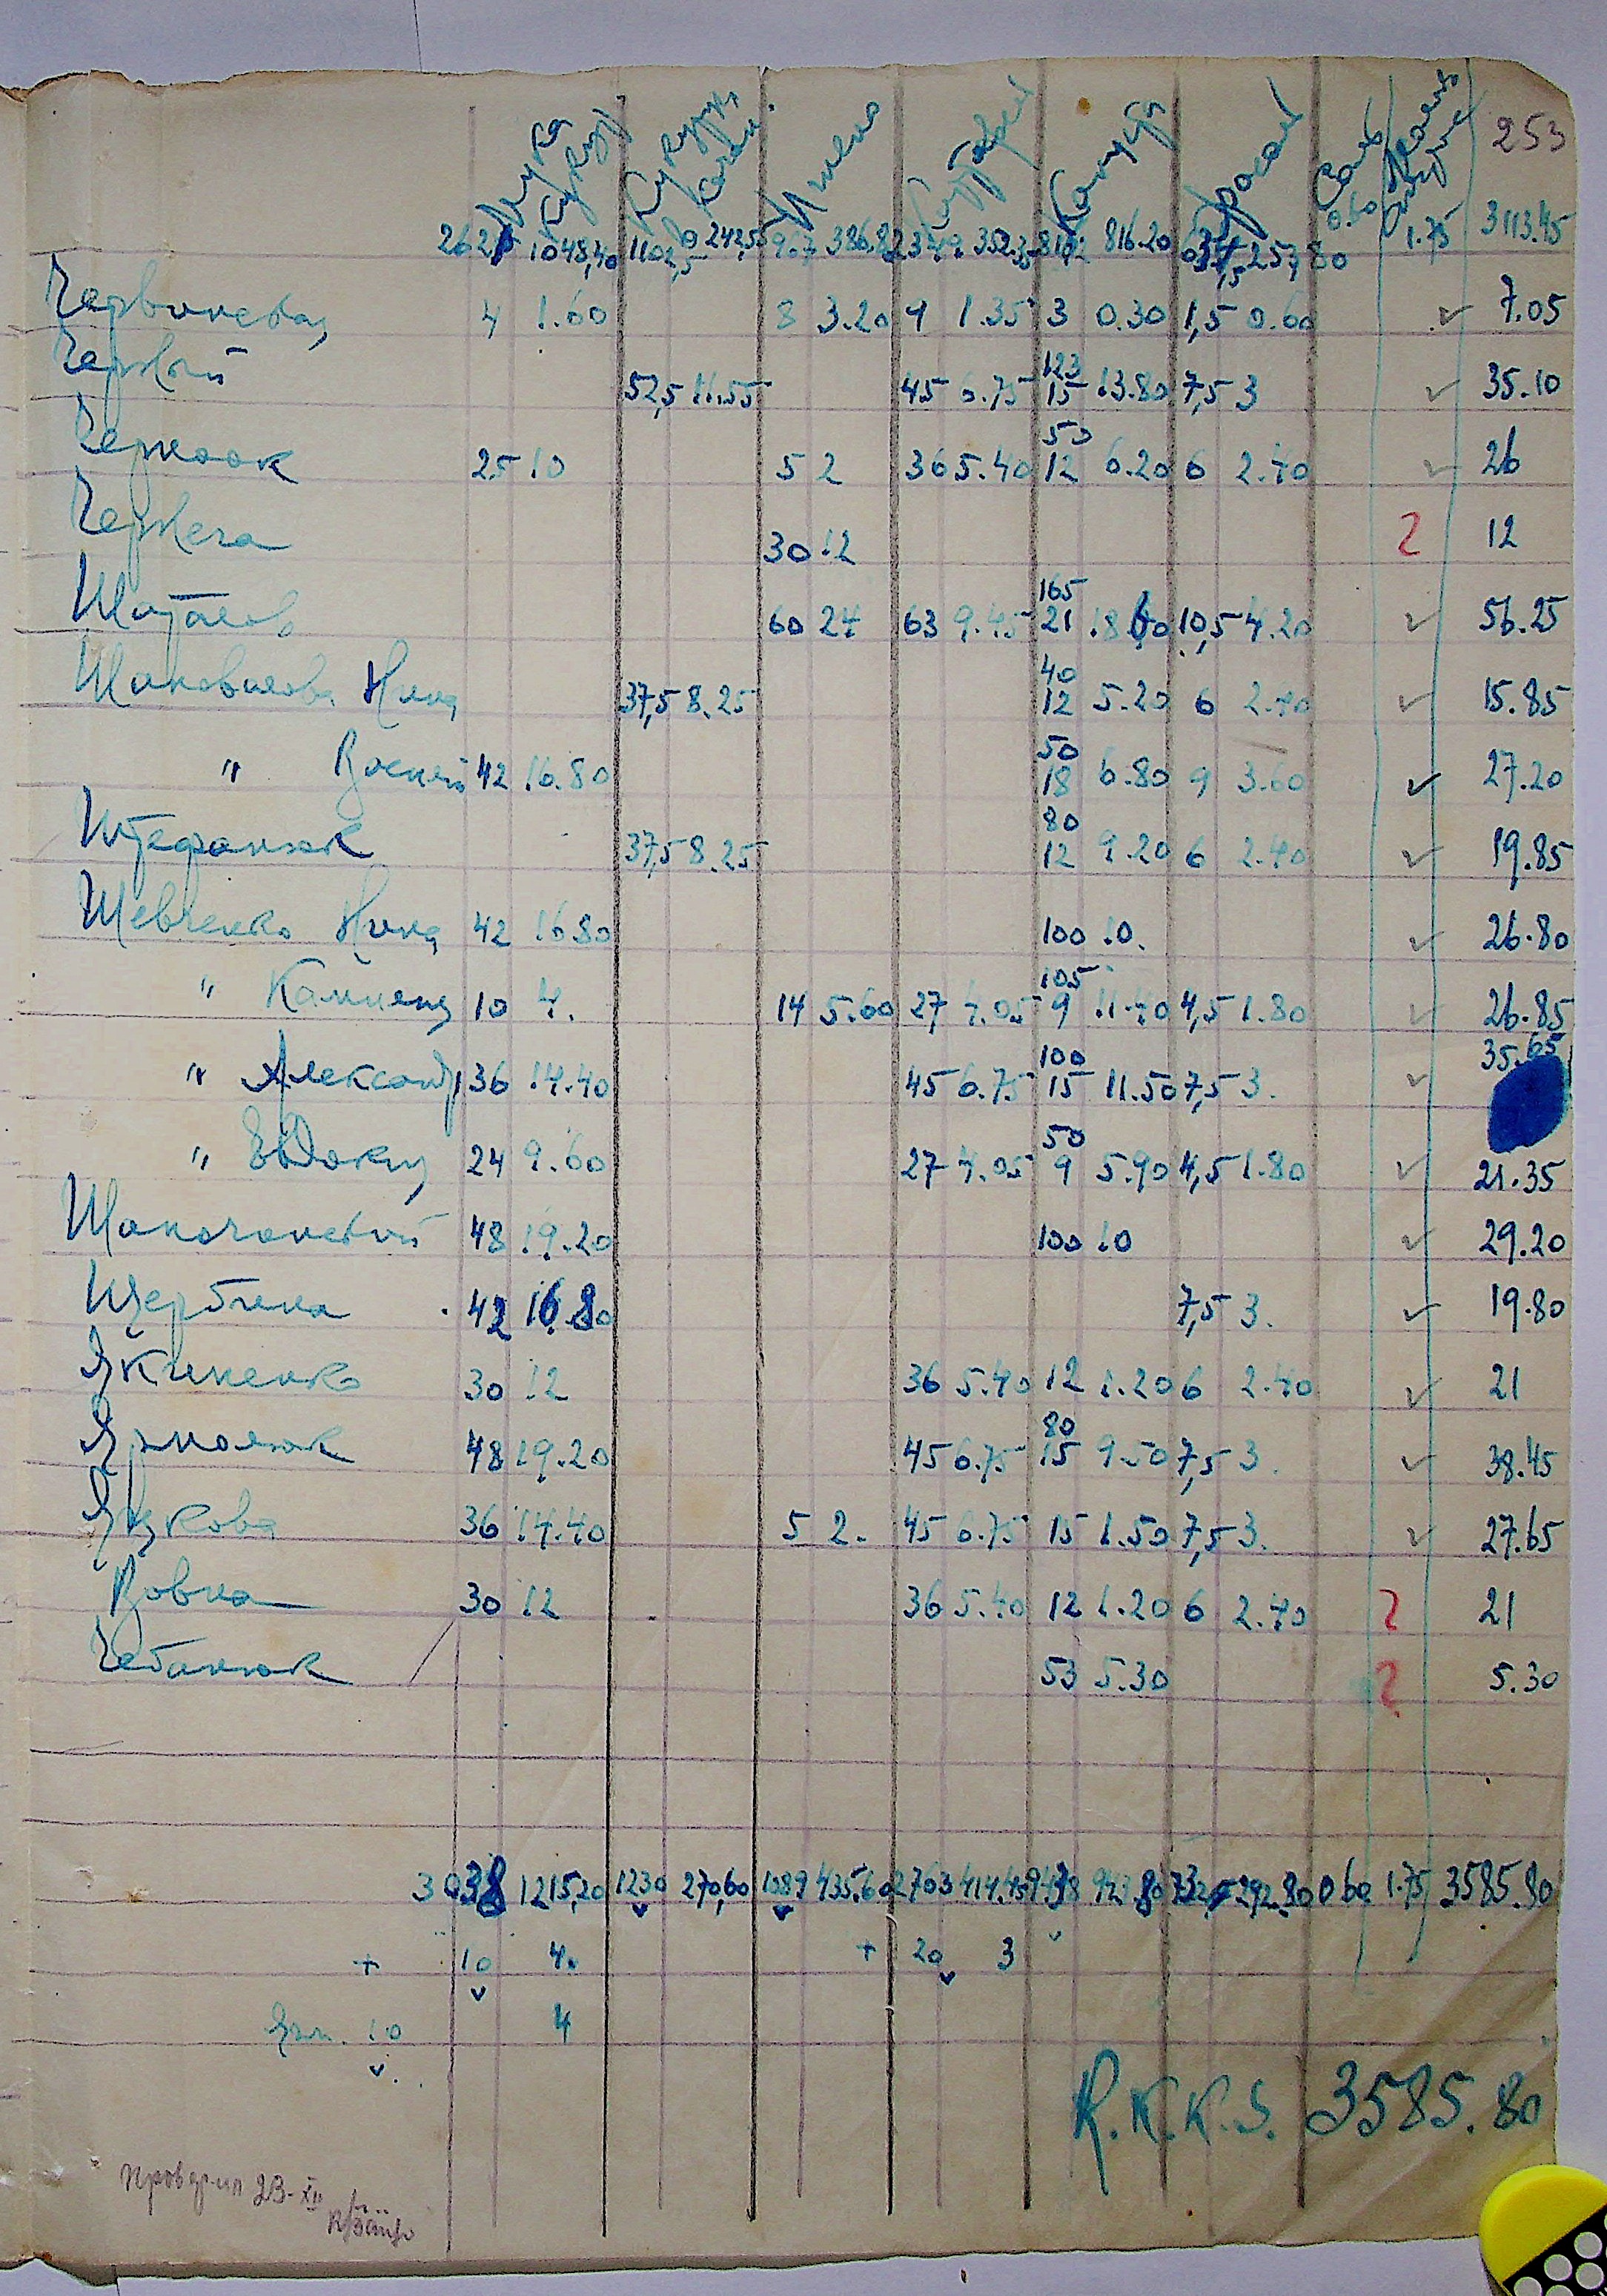 253
Мука кукур. Кукуруз. Пшено Картофель Капуста Соль 0.60
262 1048,40 1102,5 242,55 967 386.8 2349 352.35 816.20 257,80 1.75 3113.45
Червинская 4 1.60 8 3.20 9 1.35 3 0.30 1,5 0.60 7.05
Черный 52,5 11.55 45 6.75 123 15 13.80 7,5 3 35.10
25 10 5 2 36 5.40 50 12 6.20 6 2.40 26
Чернега 30 12 ? 12
Шаталов 60 24 63 9.45 165 21 18.60 10,5 4.20 56.25
Шаповалова Нина 37,5 8.25 40 12 5.20 6 2.40 15.85
" 42 16.80 50 18 6.80 9 3.60 27.20
Штефанюк 37,5 8.25 80 12 9.20 6 2.40 19.85
Шевченко Нина 42 16.80 100 10. 26.80
" 10 4. 14 5.60 27 4.05 105 9 11.40 4,5 1.80 26.85
" Александр 36 14.40 45 6.75 100 15 11.50 7,5 3. 35.65
" Евдокия 24 9.60 27 4.05 50 9 5.90 4,5 1.80 21.35
48 19.20 100 10 29.20
Щербина 42 16.80 7,5 3. 19.80
Якименко 30 12 36 5.40 12 1.20 6 2.40 21
Ярмолюк 48 19.20 45 6.75 80 15 9.50 7,5 3. 38.45
36 14.40 5 2. 45 6.75 15 1.50 7,5 3. 27.65
Вовна 30 12 36 5.40 12 1.20 6 2.40 ? 21
Чебанюк 53 5.30 ? 5.30
3038 1215,20 1230 270,60 1089 435.60 2763 414.45 292.80 0.60 1.75 3585.80
+ 10 4. + 20 3
10 4
R.K.K.S. 3585.80
Проверил 23-XII